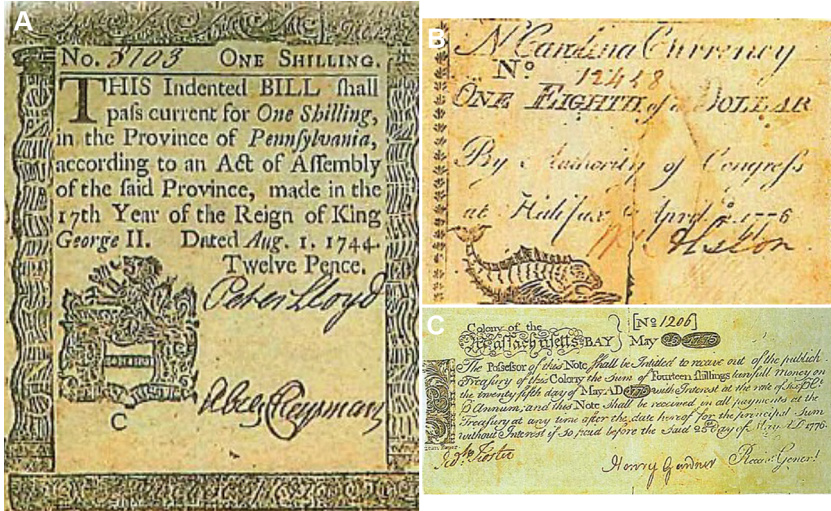 A
No. 8103 ONE SHILLING.
THIS Indented BILL ſhall
paſs current for One Shilling,
in the Province of Pennſylvania,
according to an Act of Aſſembly
of the ſaid Province, made in the
17th Year of the Reign of King
George II. Dated Aug. 1. 1744.
Twelve Pence.
Peter Lloyd
C
B
N Carolina Currency
No 12448
ONE EIGHTH of a DOLLAR
By Authority of Congreſs
at Halifax April 2. 1776
C
[No 1206]
Colony of the
Maſſachuſetts-BAY May 25 1775
The Poſſeſſor of this Note ſhall be Intitled to receive out of the publick
Treaſury of this Colony the Sum of Fourteen ſhillings lawfull money on
the twenty fifth day of May. AD 1776 with Intereſt at the rate of Six
Annum; and this Note Shall be received in all payments at the
Treaſury at any time after the date hereof for the principal Sum
without Intereſt if ſo paid before the Said 25 day of May AD 1776.
Henry Gardner Receivr Generl